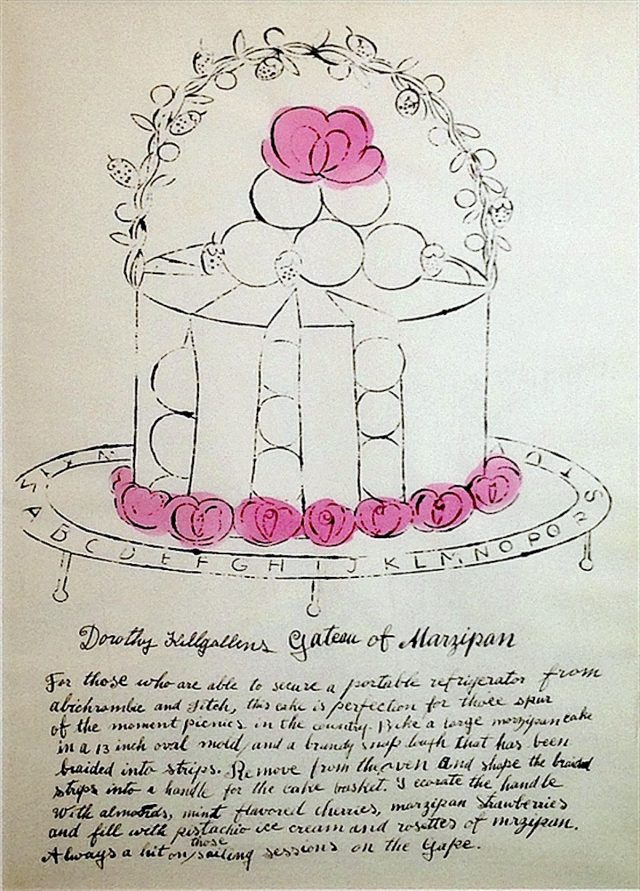 A B C D E F G H I J K L M N O P O R S
Dorothy Killgallens Gateau of Marzipan
For those who are able to secure a portable refrigerator from
abichrombie and Fitch, this cake is perfection for those spur
of the moment picnics in the country. Bake a large marzipan cake
in a 13 inch oval mold and a brandy snap lough that has been
braided into strips. Remove from the oven and shape the braided
strips into a handle for the cake basket. Decorate the handle
with almonds, mint flavored cherries, marzipan strawberries
and fill with pistachio ice cream and rosettes of mrzipan.
Always a hit on those sailing sessions on the Cape.